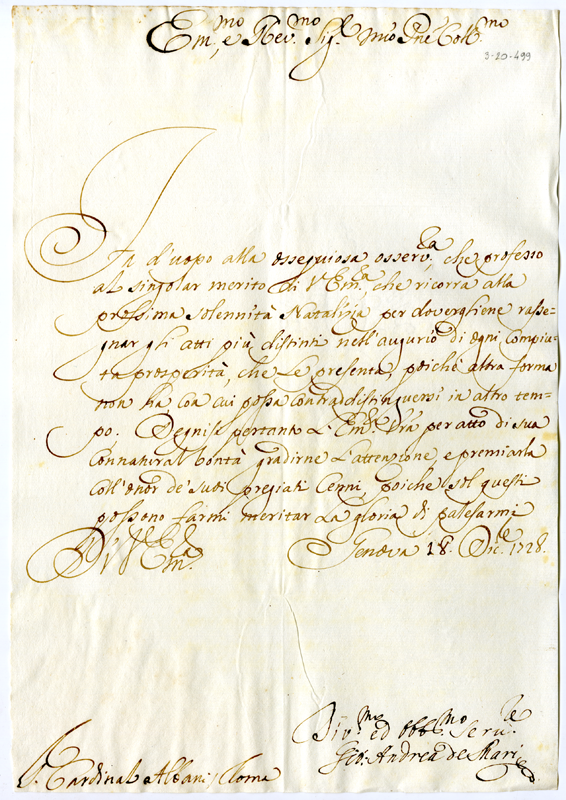 Em.mo, e Rev.mo Sig.r mio Pne Coll.mo
3-20-499
Fa d'uopo alla ossequiosa osserv.za, che professo
al singolar merito di V.Em.za, che ricorra alla
prossima solennità Natalizia per doverghiene rasse=
gnar gli atti più distinti nell'augurio di ogni compiu=
ta prosperità, che Le presenta, poichè altra forma
non ha, con cui possa contraddistinguersi in altro tem=
po. Degnisi pertanto L'Em.za Vra per atto di sua
Connatural bontà gradirne L'attenzione e premiarla
coll'onor de' suoi pregiati Cenni, poiche sol questi
possono farmi meritar La gloria di palesarmi
Di V.Em.za Genova 18. Dic.e 1728.
Div.mo ed obb.mo Serv.re
Gio: Andrea de Mari
S.r Cardinal Albani, Roma